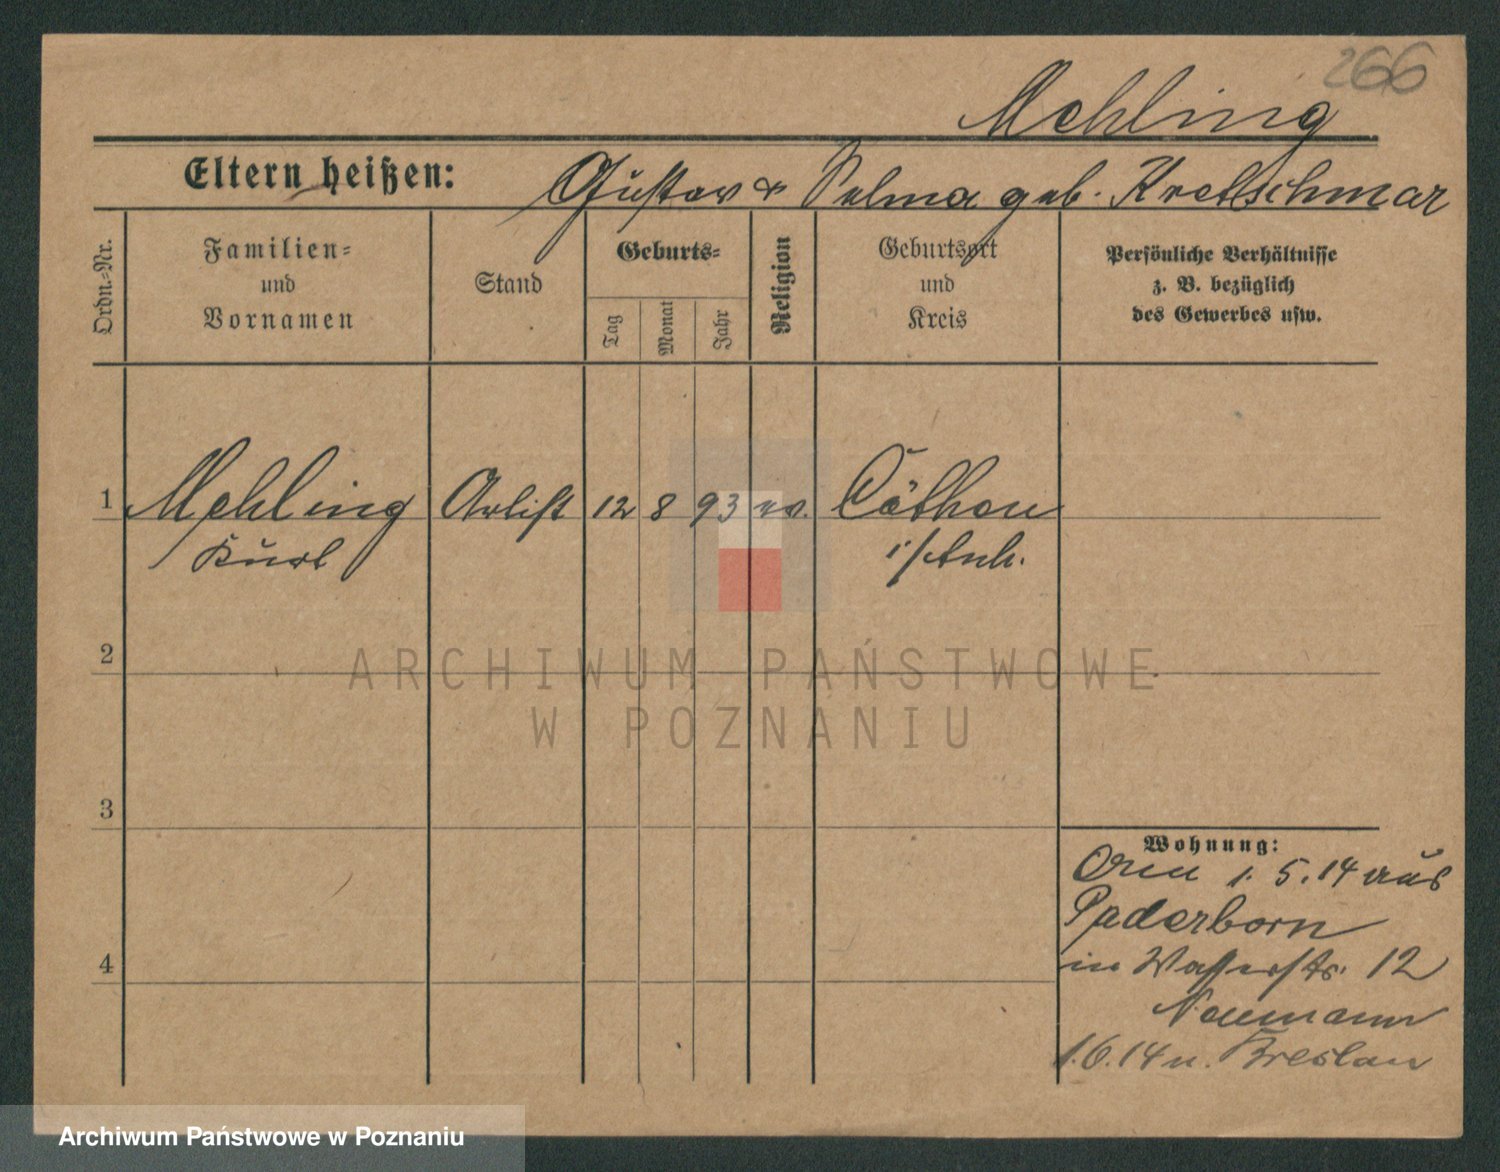 266
Mehling
Eltern heißen: Gustav & Selma geb. Kretschmar
Ordn.=Nr.
Familien=
und
Vornamen
Stand
Geburts=
Tag
Monat
Jahr
Religion
Geburtsort
und
Kreis
Persönliche Verhältnisse
z. B. bezüglich
des Gewerbes usw.
1 Mehling Artist 12 8 93 ev. Cöthen
Kurt i/Anh.
2
3
4
Wohnung:
1. 5. 14 aus
Paderborn
in Wasserstr. 12
Naumann
1.6.14 n. Breslau
ARCHIWUM PAŃSTWOWE
W POZNANIU
Archiwum Państwowe w Poznaniu